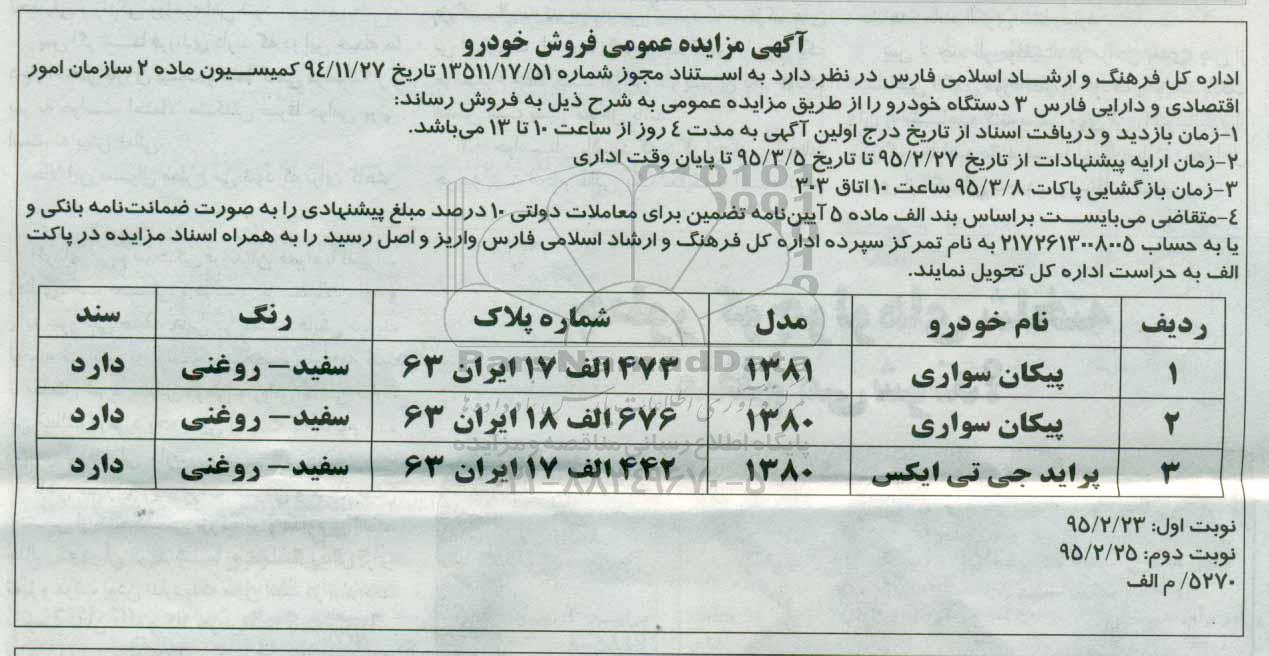 آگهی مزایده عمومی فروش خودرو
اداره کل فرهنگ و ارشاد اسلامی فارس در نظر دارد به استناد مجوز شماره ۱۳۵۱۱/۱۷/۵۱ تاریخ ۹٤/۱۱/۲۷ کمیسیون ماده ۲ سازمان امور
اقتصادی و دارایی فارس ۳ دستگاه خودرو را از طریق مزایده عمومی به شرح ذیل به فروش رساند:
۱-زمان بازدید و دریافت اسناد از تاریخ درج اولین آگهی به مدت ٤ روز از ساعت ۱۰ تا ۱۳ می‌باشد.
۲-زمان ارایه پیشنهادات از تاریخ ۹۵/۲/۲۷ تا تاریخ ۹۵/۳/۵ تا پایان وقت اداری
۳-زمان بازگشایی پاکات ۹۵/۳/۸ ساعت ۱۰ اتاق ۳۰۳
٤-متقاضی می‌بایست براساس بند الف ماده ۵ آیین‌نامه تضمین برای معاملات دولتی ۱۰ درصد مبلغ پیشنهادی را به صورت ضمانت‌نامه بانکی و
یا به حساب ۲۱۷۲۶۱۳۰۰۸۰۰۵ به نام تمرکز سپرده اداره کل فرهنگ و ارشاد اسلامی فارس واریز و اصل رسید را به همراه اسناد مزایده در پاکت
الف به حراست اداره کل تحویل نمایند.
ردیف نام خودرو مدل شماره پلاک رنگ سند
۱ پیکان سواری ۱۳۸۱ ۴۷۳ الف ۱۷ ایران ۶۳ سفید– روغنی دارد
۲ پیکان سواری ۱۳۸۰ ۶۷۶ الف ۱۸ ایران ۶۳ سفید– روغنی دارد
۳ پراید جی تی ایکس ۱۳۸۰ ۴۴۲ الف ۱۷ ایران ۶۳ سفید– روغنی دارد
ParsNamadData
پایگاه اطلاع رسانی مناقصه و مزایده
۰۲۱-۸۸۳۴۹۶۷۰-۵
نوبت اول: ۹۵/۲/۲۳
نوبت دوم: ۹۵/۲/۲۵
۵۲۷۰/ م الف